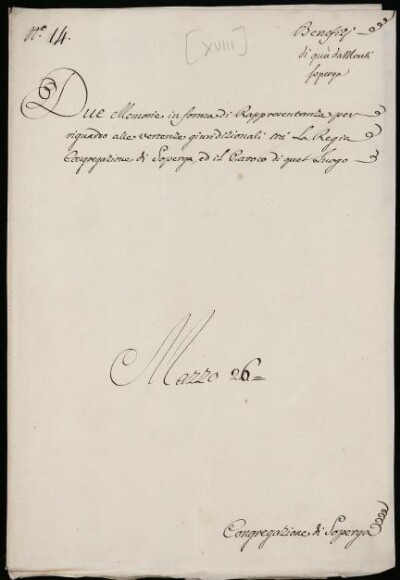 N.º 14.
[XVIII]
Benefizj
di quà da Monti
Soperga
Due Memorie in forma di Rappresentanza per
riguardo alle vertenze giurisdizionali trà La Regia
Congregazione di Soperga, ed il Paroco di quel Luogo
Mazzo 26=
Congregazione di Soperga